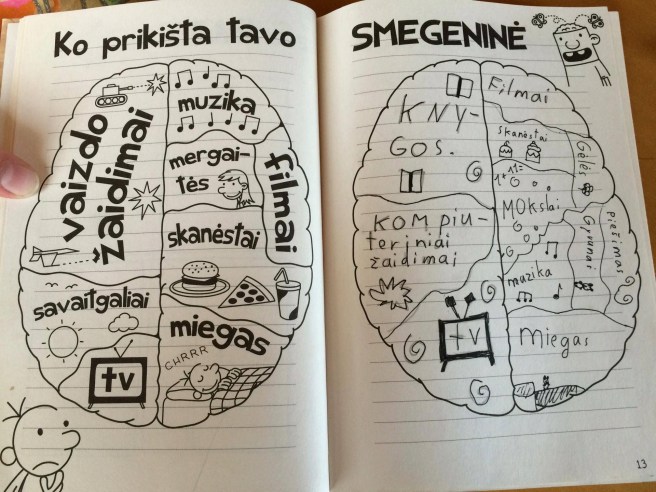 Ko prikišta tavo
SMEGENINĖ
vaizdo
žaidimai
muzika
mergai-
tės
filmai
skanėstai
savaitgaliai
miegas
CHRRR
tv
KNY-
GOS.
Filmai
skanėstai
Gėlės
MOKslai
KOMpiu-
teriniai
žaidimai
Gyvūnai
Piešimas
muzika
tv
Miegas
13